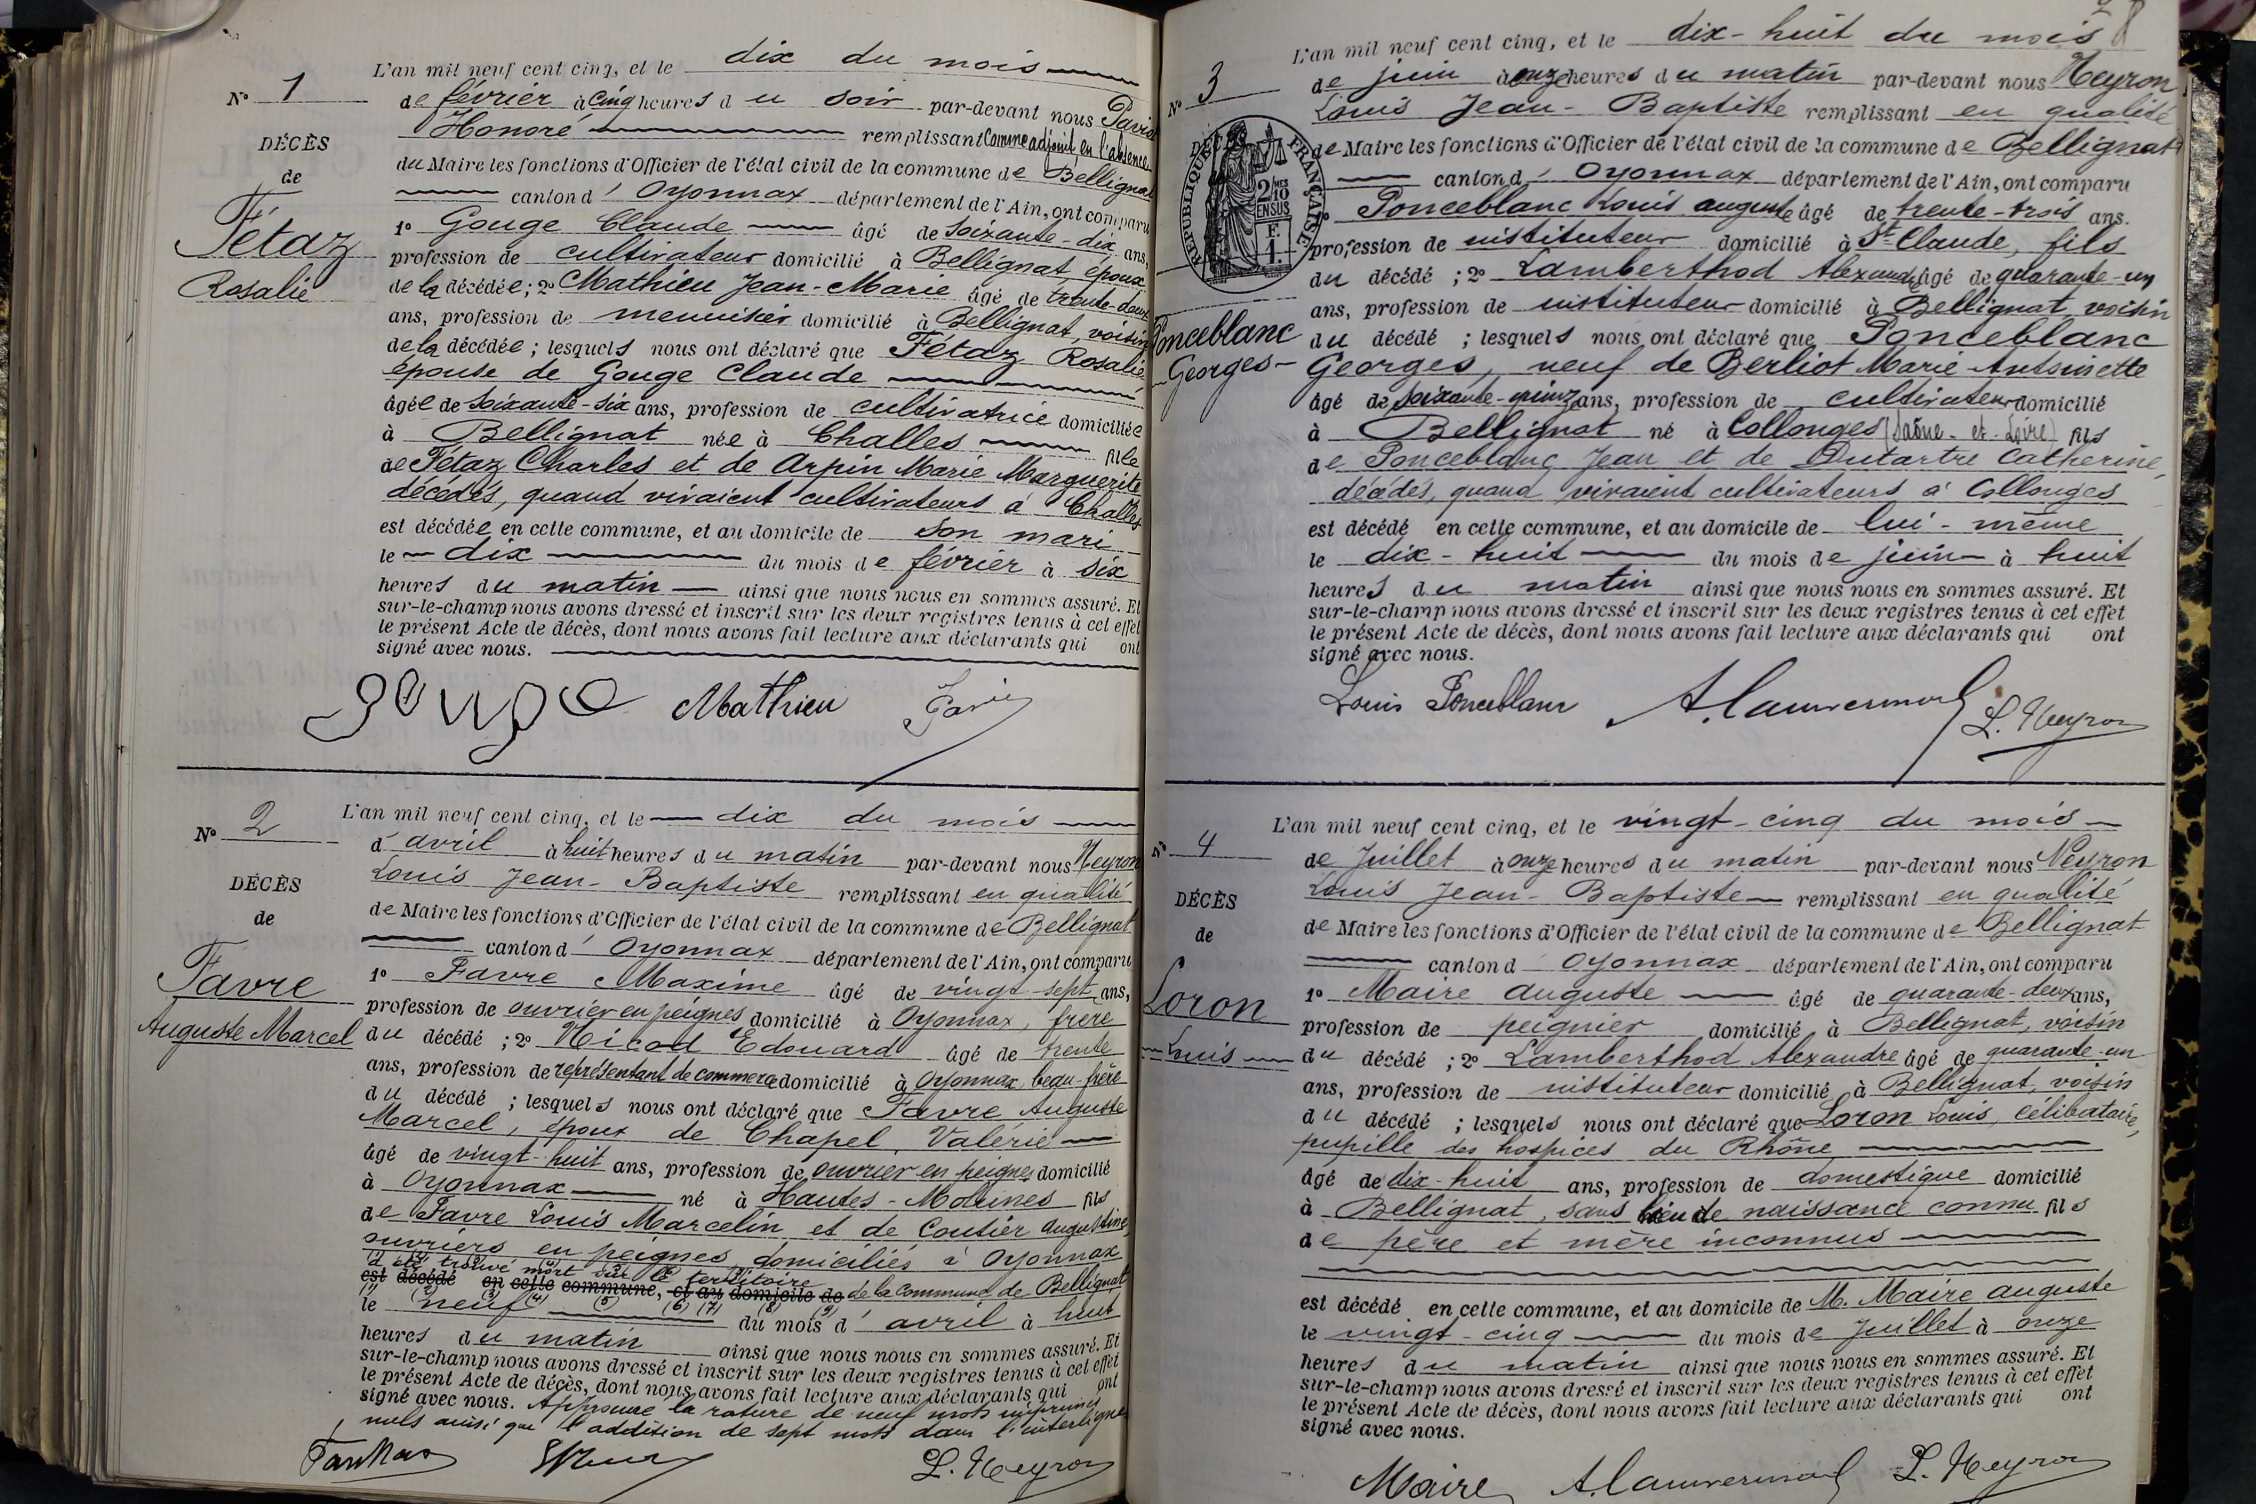 N° 1
DÉCÈS
de
Fétaz
Rosalie
L'an mil neuf cent cinq, et le dix du mois
de février à cinq heures du soir par-devant nous
Honoré remplissant comme adjoint en l'absence
du Maire les fonctions d'Officier de l'état civil de la commune de Bellignat
canton d'Oyonnax département de l'Ain, ont comparu
1° Gouge Claude âgé de soixante-dix ans,
profession de cultivateur domicilié à Bellignat époux
de la décédée ; 2° Mathieu Jean-Marie âgé de trente-deux
ans, profession de menuisier domicilié à Bellignat, voisin
de la décédée ; lesquels nous ont déclaré que Fétaz Rosalie
épouse de Gouge Claude
âgée de soixante-six ans, profession de cultivatrice domiciliée
à Bellignat née à Challes fille
de Fétaz Charles et de Arpin Marie Marguerite
décédés, quand vivaient cultivateurs à Challes
est décédée en cette commune, et au domicile de son mari
le dix du mois de février à six
heures du matin ainsi que nous nous en sommes assuré. Et
sur-le-champ nous avons dressé et inscrit sur les deux registres tenus à cet effet
le présent Acte de décès, dont nous avons fait lecture aux déclarants qui ont
signé avec nous.
Gouge Mathieu
N° 2
DÉCÈS
de
Favre
Auguste Marcel
L'an mil neuf cent cinq, et le dix du mois
d'avril à huit heures du matin par-devant nous Neyron
Louis Jean-Baptiste remplissant en qualité
de Maire les fonctions d'Officier de l'état civil de la commune de Bellignat
canton d'Oyonnax département de l'Ain, ont comparu
1° Favre Maxime âgé de vingt-sept ans,
profession de ouvrier en peignes domicilié à Oyonnax, frère
du décédé ; 2° Nicod Edouard âgé de trente
ans, profession de représentant de commerce domicilié à Oyonnax, beau-frère
du décédé ; lesquels nous ont déclaré que Favre Auguste
Marcel, époux de Chapel Valérie
âgé de vingt-huit ans, profession de ouvrier en peignes domicilié
à Oyonnax né à Hautes-Molunes fils
de Favre Louis Marcelin et de Coutier Augustine
ouvriers en peignes domiciliés à Oyonnax
a été trouvé mort sur le territoire
est décédé en cette commune, et au domicile de de la commune de Bellignat
(1) (2) (3) (4) (5) (6) (7) (8) (9)
le neuf du mois d'avril à huit
heures du matin ainsi que nous nous en sommes assuré. Et
sur-le-champ nous avons dressé et inscrit sur les deux registres tenus à cet effet
le présent Acte de décès, dont nous avons fait lecture aux déclarants qui ont
signé avec nous. Approuvé la rature de neuf mots imprimés
nuls ainsi que l'addition de sept mots dans l'interligne
L. Neyron
N° 3
RÉPUBLIQUE FRANÇAISE
2/10 EN SUS
F.
1.
Ponceblanc
Georges
L'an mil neuf cent cinq, et le dix-huit du mois
de juin à onze heures du matin par-devant nous Neyron
Louis Jean-Baptiste remplissant en qualité
de Maire les fonctions d'Officier de l'état civil de la commune de Bellignat
canton d'Oyonnax département de l'Ain, ont comparu
1° Ponceblanc Louis auguste âgé de trente-trois ans.
profession de instituteur domicilié à St-Claude, fils
du décédé ; 2° Lamberthod Alexandre âgé de quarante-un
ans, profession de instituteur domicilié à Bellignat, voisin
du décédé ; lesquels nous ont déclaré que Ponceblanc
Georges, veuf de Berliot Marie Antoinette
âgé de soixante-quinze ans, profession de cultivateur domicilié
à Bellignat né à Collonges (Saône-et-Loire) fils
de Ponceblanc Jean et de Dutartre Catherine,
décédés, quand vivaient cultivateurs à Collonges
est décédé en cette commune, et au domicile de lui-même
le dix-huit du mois de juin à huit
heures du matin ainsi que nous nous en sommes assuré. Et
sur-le-champ nous avons dressé et inscrit sur les deux registres tenus à cet effet
le présent Acte de décès, dont nous avons fait lecture aux déclarants qui ont
signé avec nous.
Louis Ponceblanc L. Neyron
N° 4
DÉCÈS
de
Loron
Louis
L'an mil neuf cent cinq, et le vingt-cinq du mois
de Juillet à onze heures du matin par-devant nous Neyron
Louis Jean-Baptiste remplissant en qualité
de Maire les fonctions d'Officier de l'état civil de la commune de Bellignat
canton d'Oyonnax département de l'Ain, ont comparu
1° Maire auguste âgé de quarante-deux ans,
profession de peignier domicilié à Bellignat, voisin
du décédé ; 2° Lamberthod Alexandre âgé de quarante-un
ans, profession de instituteur domicilié à Bellignat, voisin
du décédé ; lesquels nous ont déclaré que Loron Louis, célibataire,
pupille des hospices du Rhône
âgé de dix-huit ans, profession de domestique domicilié
à Bellignat, sans lieu de naissance connu fils
de père et mère inconnus
est décédé en cette commune, et au domicile de M. Maire auguste
le vingt-cinq du mois de Juillet à onze
heures du matin ainsi que nous nous en sommes assuré. Et
sur-le-champ nous avons dressé et inscrit sur les deux registres tenus à cet effet
le présent Acte de décès, dont nous avons fait lecture aux déclarants qui ont
signé avec nous.
Maire L. Neyron